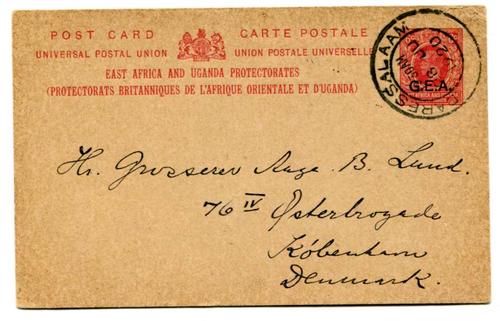 POST CARD CARTE POSTALE
UNIVERSAL POSTAL UNION UNION POSTALE UNIVERSELLE
EAST AFRICA AND UGANDA PROTECTORATES
(PROTECTORATS BRITANNIQUES DE L'AFRIQUE ORIENTALE ET D'UGANDA)
DARESSALAAM
G.E.A.
Hr. Grosserer Aage B. Lund.
76 IV Østerbrogade
København
Denmark.